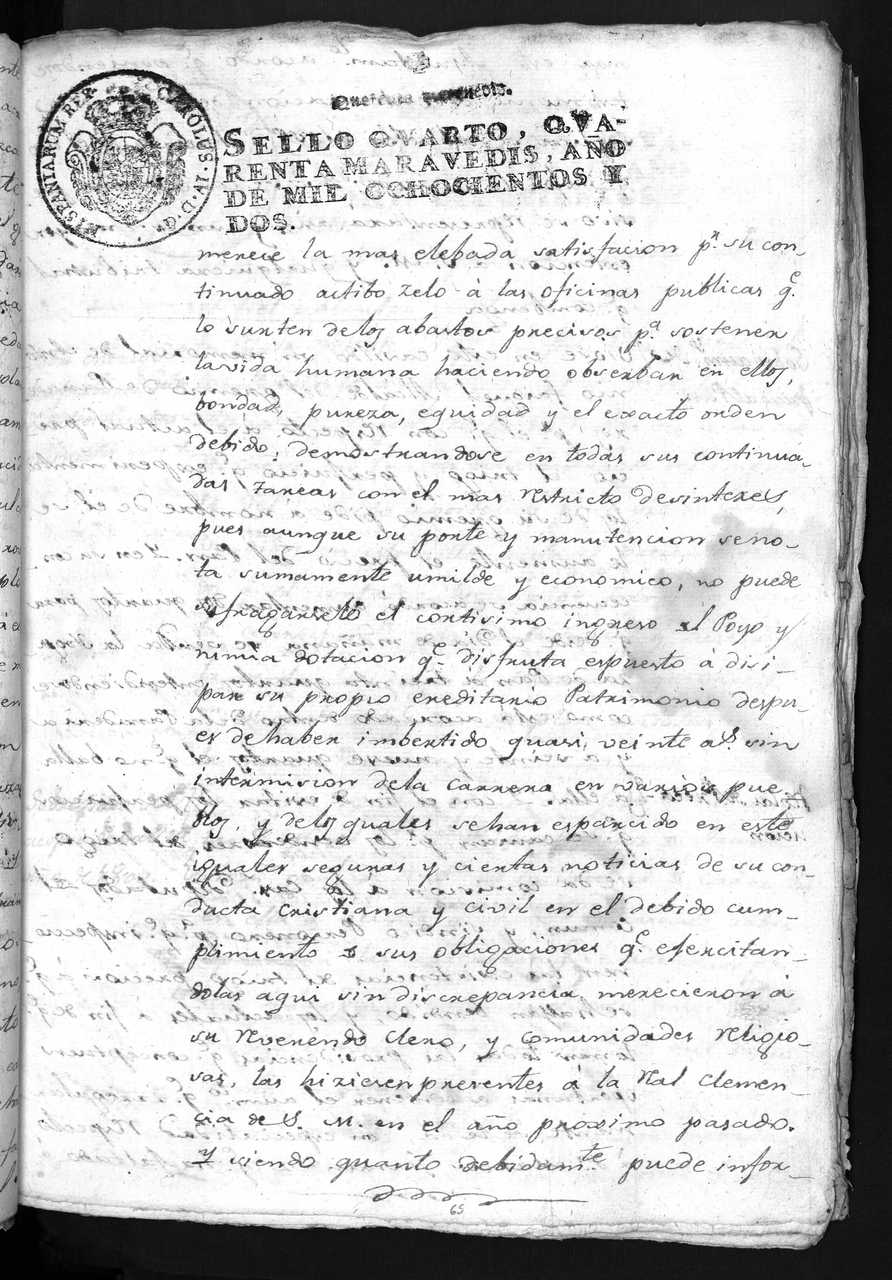 Quarenta maravedis.
HISPANIARUM REX. CAROLUS. IV. D. G.
SELLO QVARTO, QVA-
RENTA MARAVEDIS, AÑO
DE MIL OCHOCIENTOS Y
DOS.
merece la mas elebada satisfacion pr. su con
tinuado actibo zelo á las oficinas publicas q.e
lo surten de los abastos precisos p.a sostener
la vida humana haciendo obserbar en ellos,
bondad, pureza, equidad y el exacto orden
debido; demostrandose en todas sus continua-
das tareas con el mas restricto desinteres,
pues aunque su porte y manutencion se no-
ta sumamente umilde y economico, no puede
sufragarselo el cortisimo ingreso del Poyo y
nimia dotacion q.e disfruta espuesto á disi-
par su propio ereditario Patrimonio despu-
es de haber imbertido quasi, veinte a.s sin
intermision de la carrera en varios pue-
blos, y de los quales se han esparcido en este
iguales seguras y ciertas noticias de su con-
ducta Cristiana y civil en el debido cum-
plimiento de sus obligaciones q.e efercitan-
dolas aqui sin discrepancia merecieron á
su reverendo clero, y comunidades religio-
sas, las hizieren presentes á la Ral Clemen-
cia de S. M. en el año proximo pasado.
Y siendo quanto debidam.te puede infor-
65